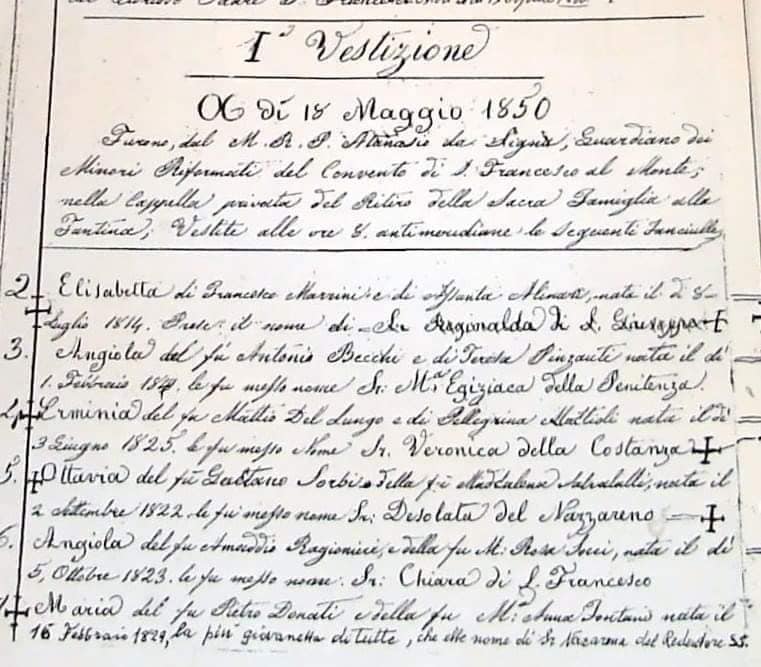 Iª Vestizione
A dì 18 Maggio 1850
Furono, dal M. R. P. Atanasio da Signa, Guardiano dei
Minori Riformati del Convento di S. Francesco al Monte;
nella Cappella privata del Ritiro della Sacra Famiglia alla
Fantina; Vestite alle ore 8. antimeridiane le seguenti Fanciulle
2 Elisabetta di Francesco Marrini e di Assunta nata il dì 8
Luglio 1814. Prese il nome di Sr. di S. Giuseppe
3. Angiola del fù Antonio Becchi e di Teresa Pinzauti nata il dì
1. Febbraio le fu messo nome Sr. Mª Egiziaca della Penitenza.
4 Erminia del fu Mattio Del Lungo e di Pellegrina Mattioli nata il dì
3 Giugno 1825. le fu messo Nome Sr. Veronica della Costanza
5. Ottavia del fù Gaetano Sorbi e della fù Maddalena nata il
2 Settembre 1822. le fu messo nome Sr: Desolata del Nazzareno
6. Angiola del fu Amaddio Ragionieri, e della fu M: Rosa nata il dì
5, Ottobre 1823. le fu messo nome. Sr: Chiara di S. Francesco
Maria del fu Pietro Donati e della fu Mª Anna Fontani nata il
16 Febbraio 1829, la più giovanetta di tutte, che ebbe nome di Sr Nazarena del Redentore SS.